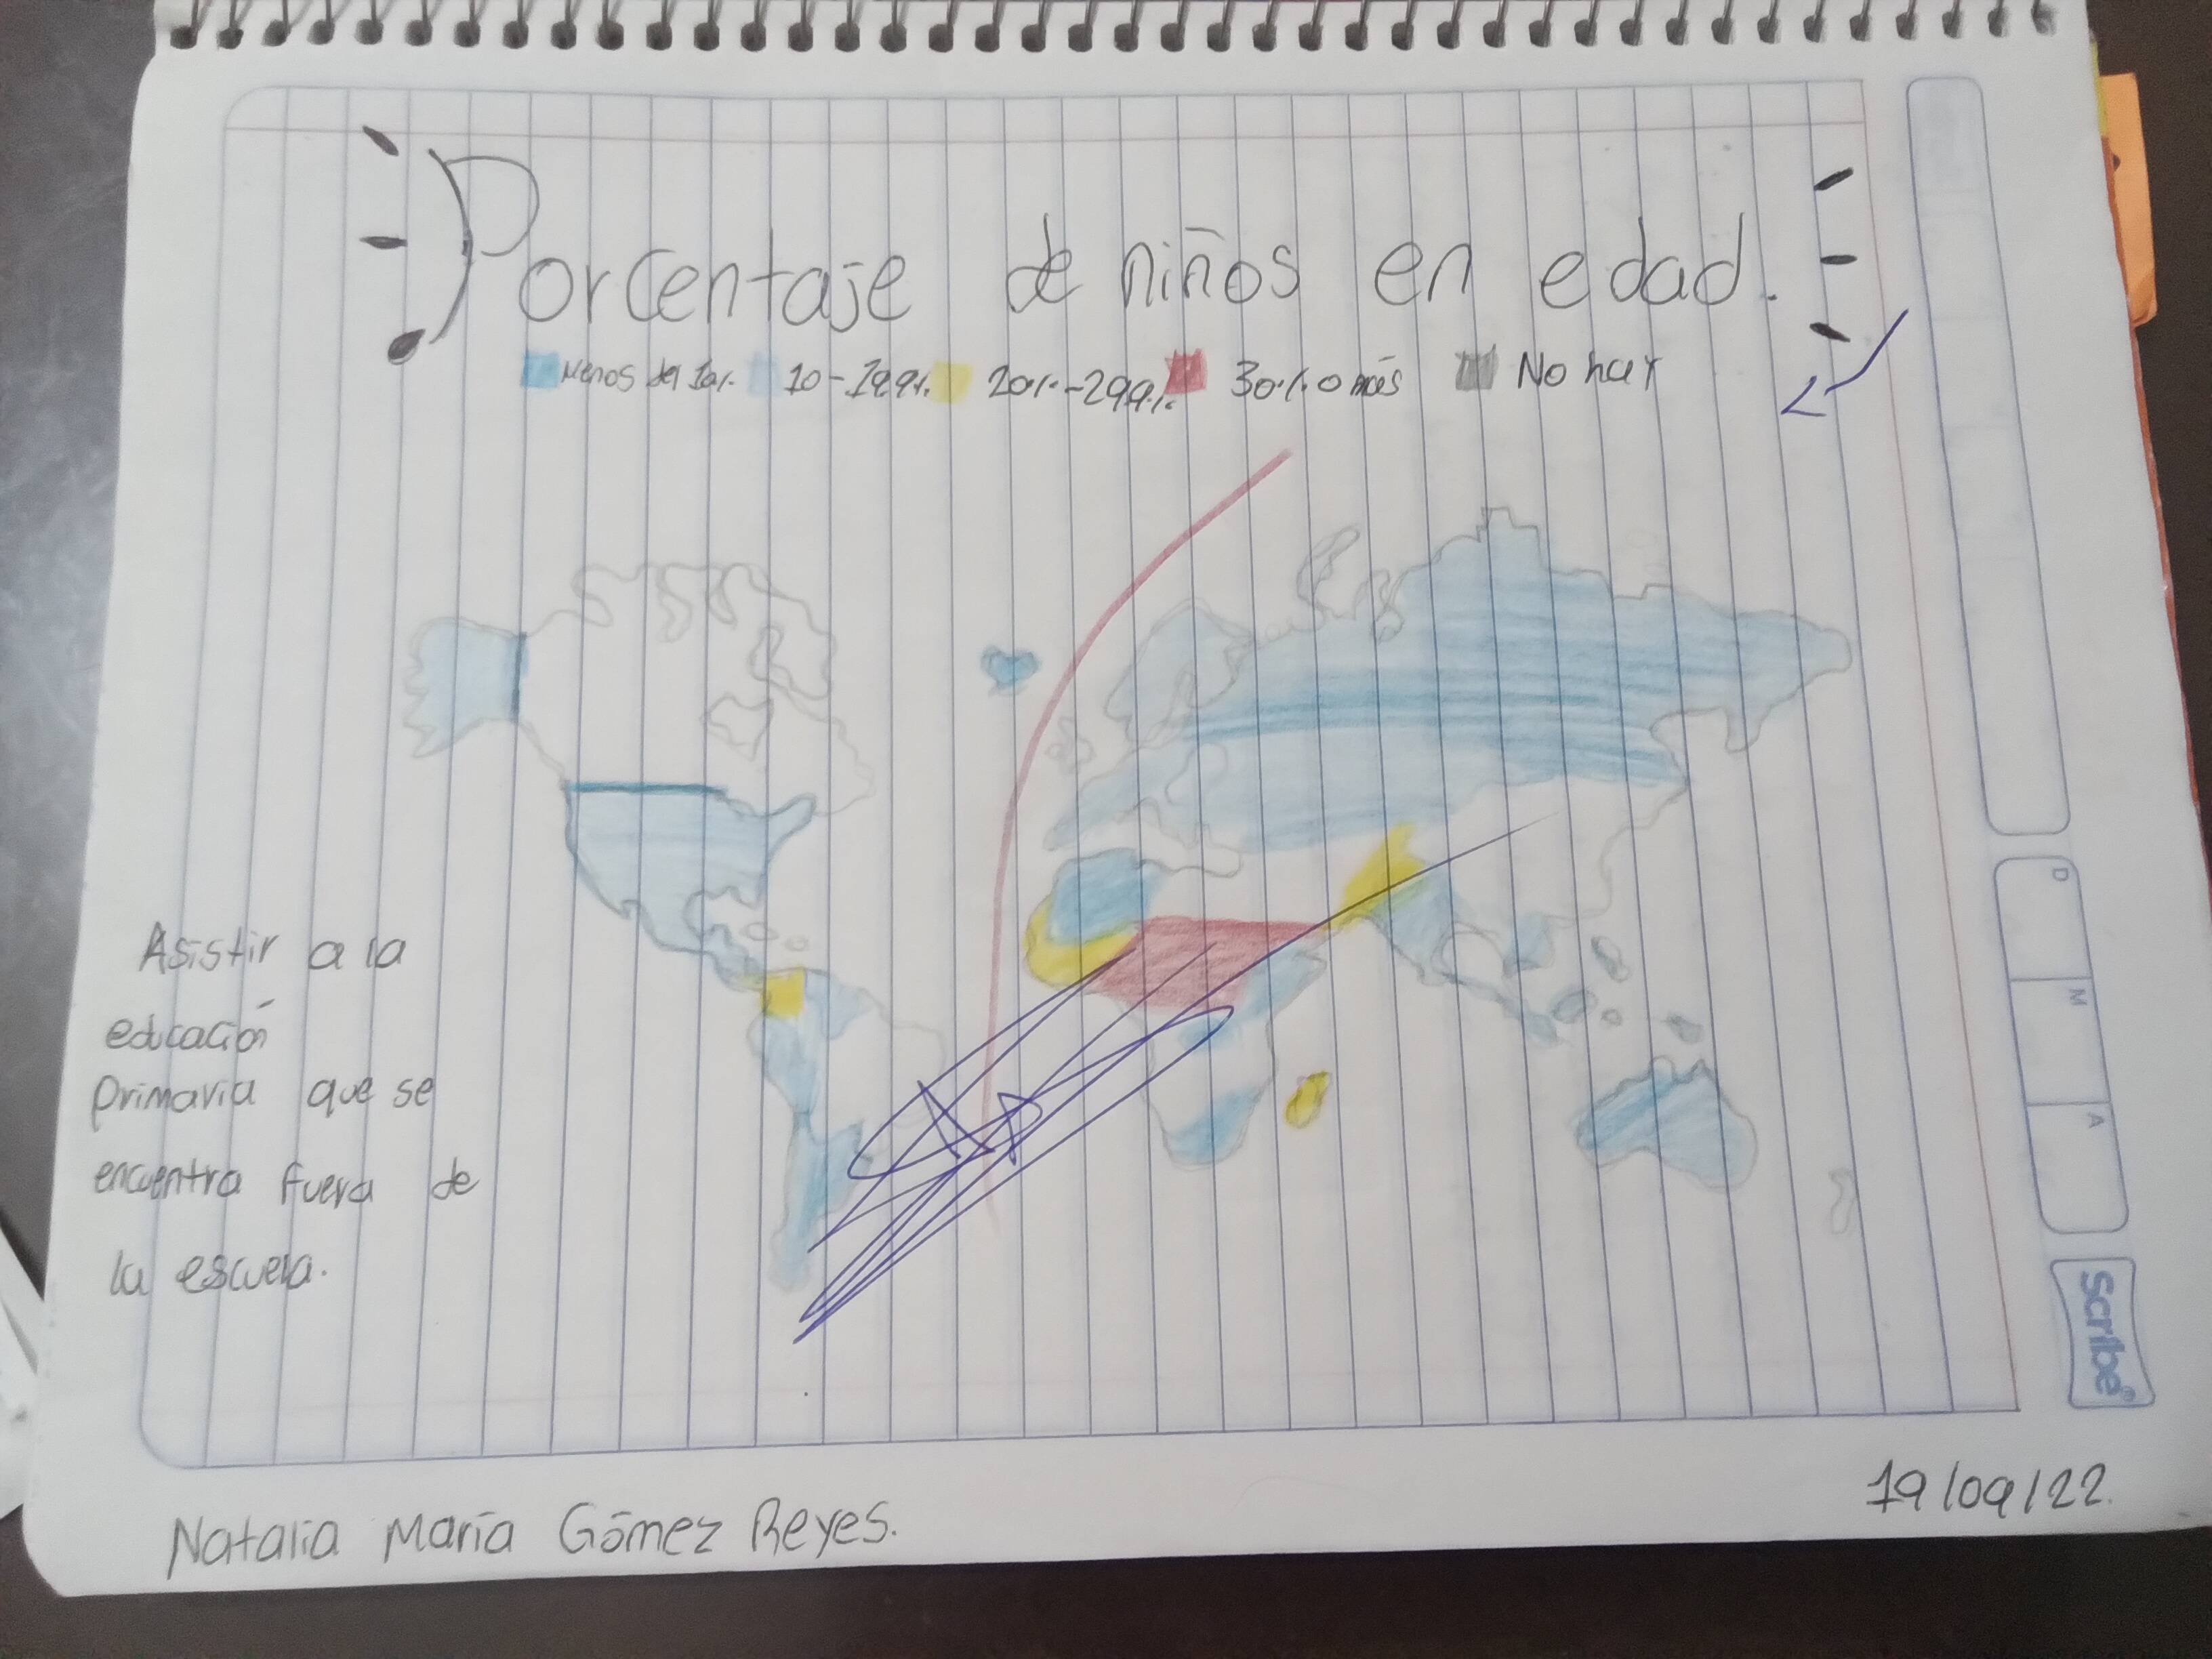 Porcentaje de niños en edad.
Menos del 10%. 10-19.9%. 20%-29.9%. 30% o más No hay
Asistir a la
educación
primaria que se
encuentra fuera de
la escuela.
D
M
A
Scribe®
Natalia María Gómez Reyes.
19/09/22.